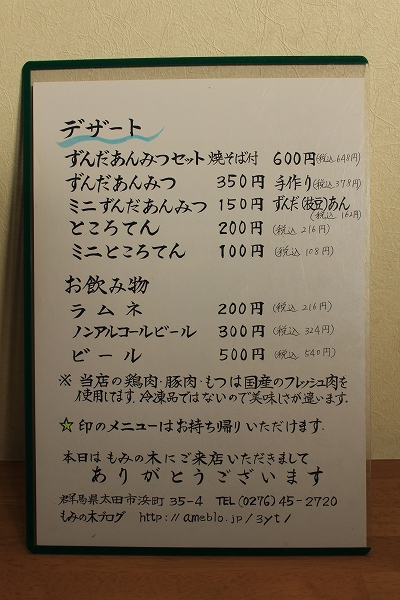 デザート
ずんだあんみつセット 焼そば付 600円(税込648円)
ずんだあんみつ 350円 手作り(税込378円)
ミニずんだあんみつ 150円 ずんだ(枝豆)あん
(税込 162円)
ところてん 200円 (税込 216円)
ミニところてん 100円 (税込 108円)
お飲み物
ラムネ 200円 (税込 216円)
ノンアルコールビール 300円 (税込 324円)
ビール 500円 (税込 540円)
※ 当店の鶏肉・豚肉・もつは国産のフレッシュ肉を
使用してます。冷凍品ではないので美味しさが違います。
☆印のメニューはお持ち帰りいただけます.
本日はもみの木にご来店いただきまして
ありがとうございます
群馬県太田市浜町 35-4 TEL(0276)45-2720
もみの木ブログ http://ameblo.jp/3yt/